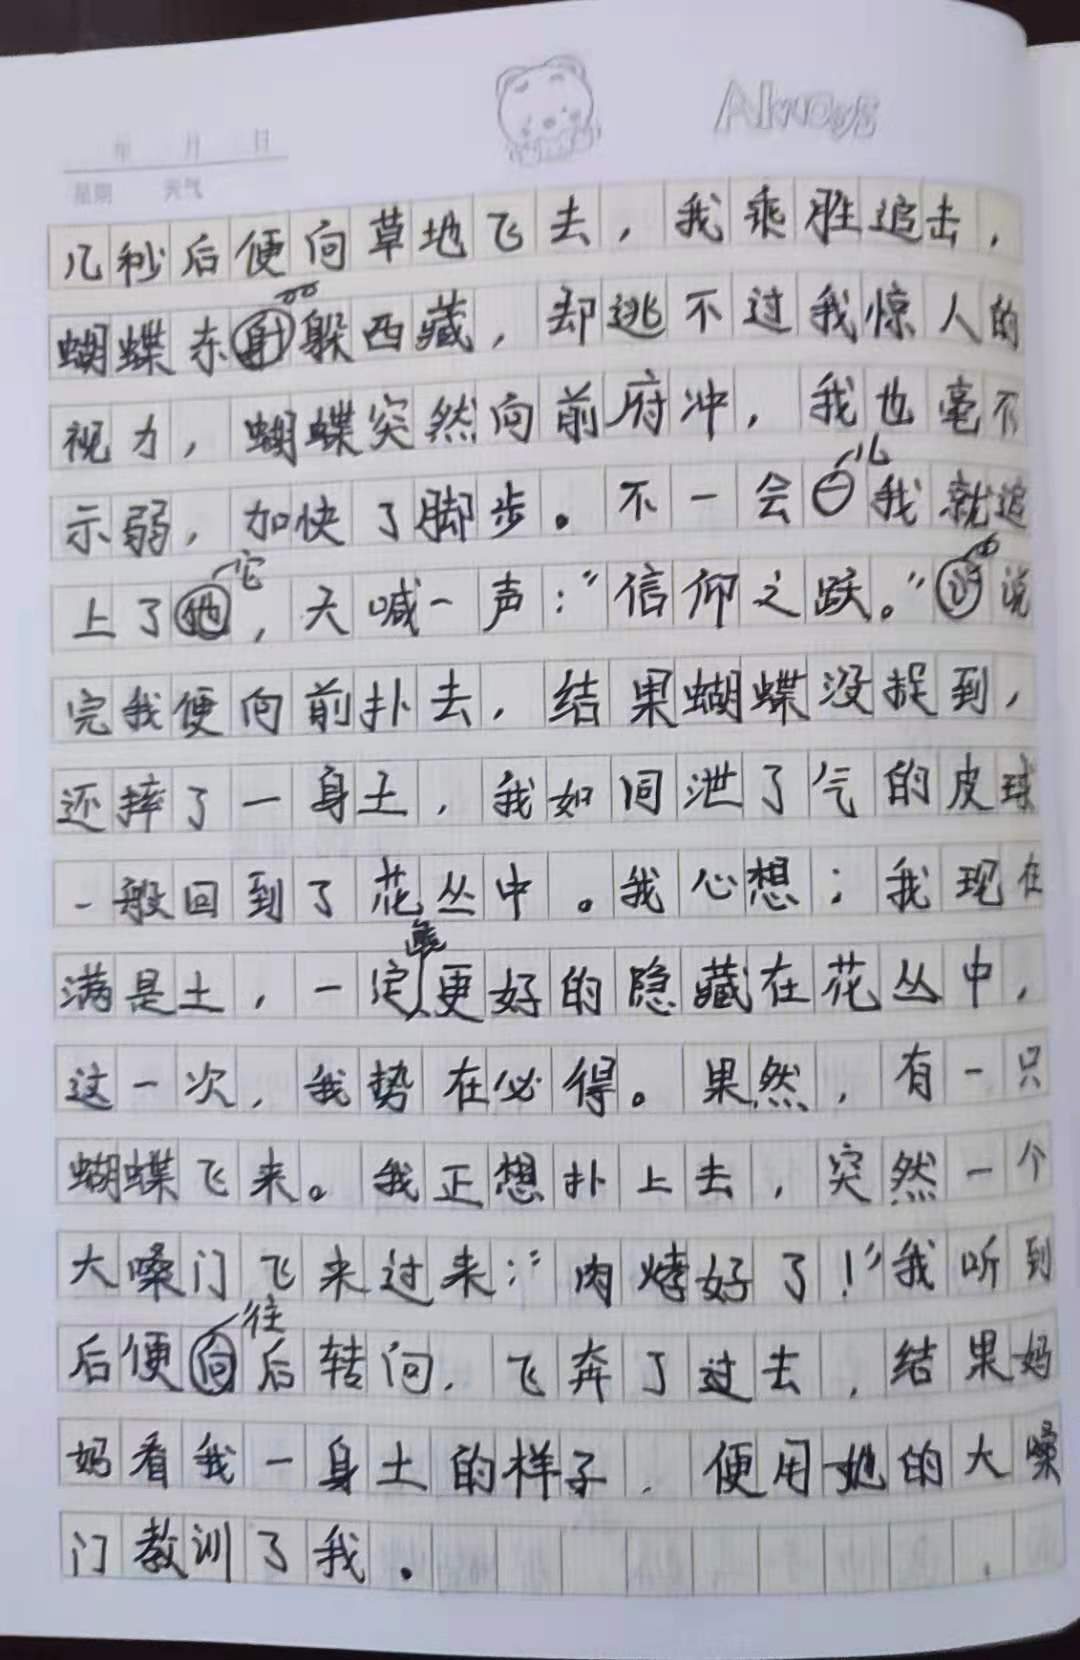 Always
年 月 日
星期 天气
几秒后便向草地飞去，我乘胜追击，
蝴蝶东躲西藏，却逃不过我惊人的
视力，蝴蝶突然向前俯冲，我也毫不
示弱，加快了脚步。不一会儿我就追
上了它，大喊一声：“信仰之跃。”说
完我便向前扑去，结果蝴蝶没捉到，
还摔了一身土，我如同泄了气的皮球
一般回到了花丛中。我心想：我现在
满是土，一定能更好的隐藏在花丛中，
这一次，我势在必得。果然，有一只
蝴蝶飞来。我正想扑上去，突然一个
大嗓门飞来过来：“肉烤好了！”我听到
后便往后转向，飞奔了过去，结果妈
妈看我一身土的样子，便用她的大嗓
门教训了我。